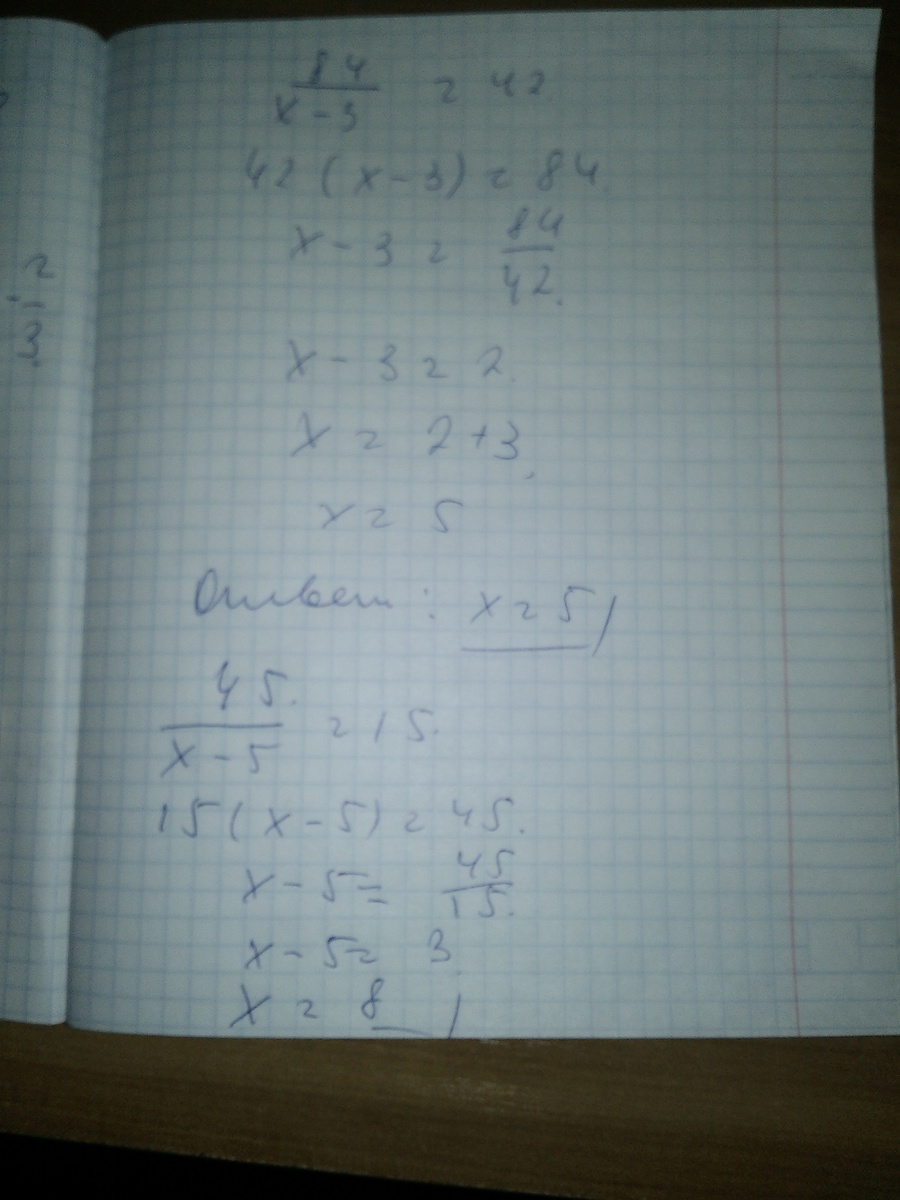 84
x - 3 = 42
42 (x - 3) = 84.
x - 3 = 84
42.
x - 3 = 2.
x = 2 + 3
x = 5
Ответ: x = 5
45.
x - 5 = 15.
15 (x - 5) = 45.
x - 5 = 45
15.
x - 5 = 3
x = 8
2
3